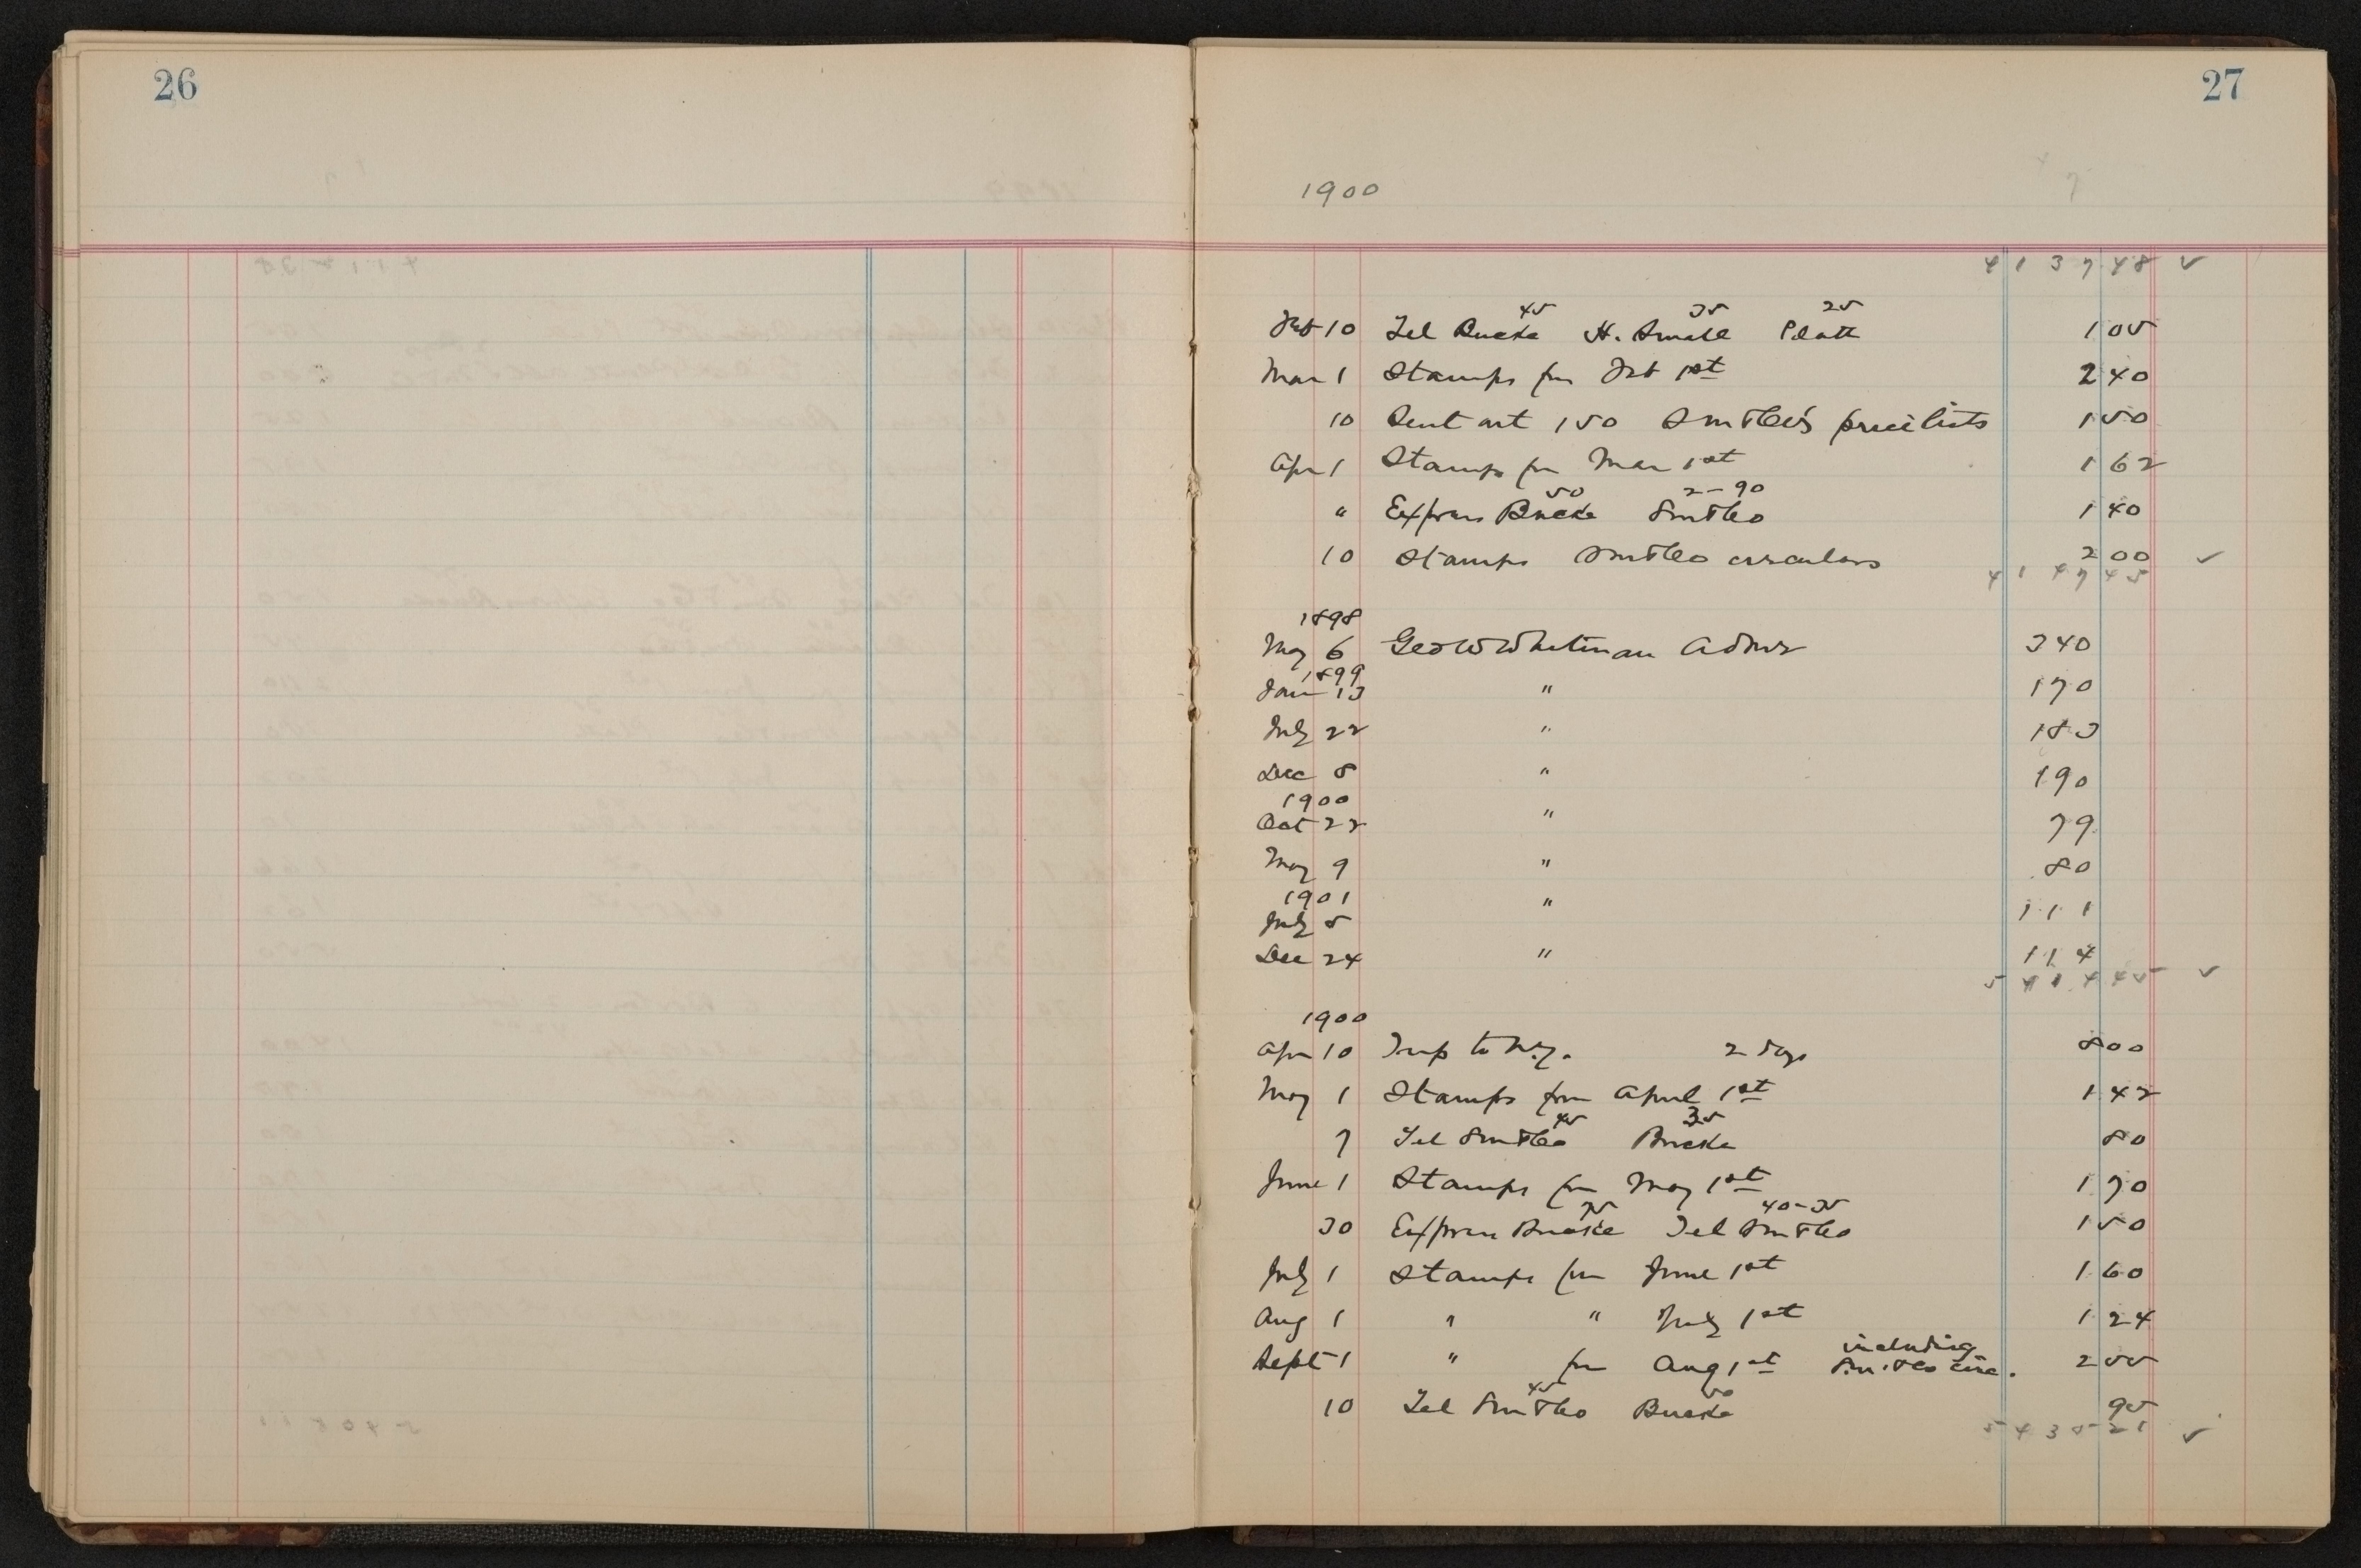 26
27
1900
4137 48 ✓
45 35 25
Feb 10 Tel Bucke H. Small Platt 1 05
Mar 1 Stamps from Feb 1st 2 40
10 Sent out 150 SM&Co's price lists 1 50
Apr 1 Stamps from Mar 1st 1 62
50 2-90
" Express Bucke SM&Co 1 40
10 Stamps SM&Co circulars 2 00 ✓
4147 45
1898
May 6 Geo W Whitman Admr 340
1899
Jan 13 " 170
July 22 " 183
Dec 8 " 190
1900
Oct 22 " 79
May 9 " 80
1901
July 8 " 111
Dec 24 " 114
5414 45 ✓
1900
Apr 10 Trip to N.Y. 2 days 8 00
May 1 Stamps from April 1st 1 42
45 35
7 Tel SM&Co Bucke 80
June 1 Stamps from May 1st 1 70
75 40-35
30 Express Bucke Tel SM&Co 1 50
July 1 Stamps from June 1st 1 60
Aug 1 " " July 1st 1 24
including
Sept 1 " from Aug 1st SM&Co circ. 2 55
45 50
10 Tel SM&Co Bucke 95
5435 21 ✓